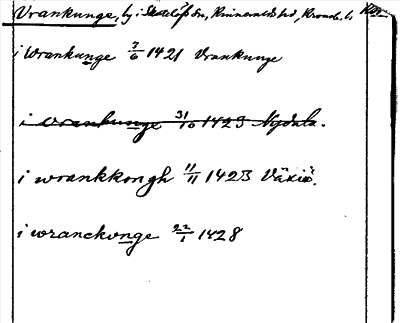 Vrankunge, by i Skatelöfs sn, Kinnevalds hd, Kronob. l.
i wrankunge 3/6 1421 Vrankunge
i wrankunge 31/10 1423 Nydala.
i wrankkongh 11/11 1423 Växiö.
i wranckonge 22/1 1428